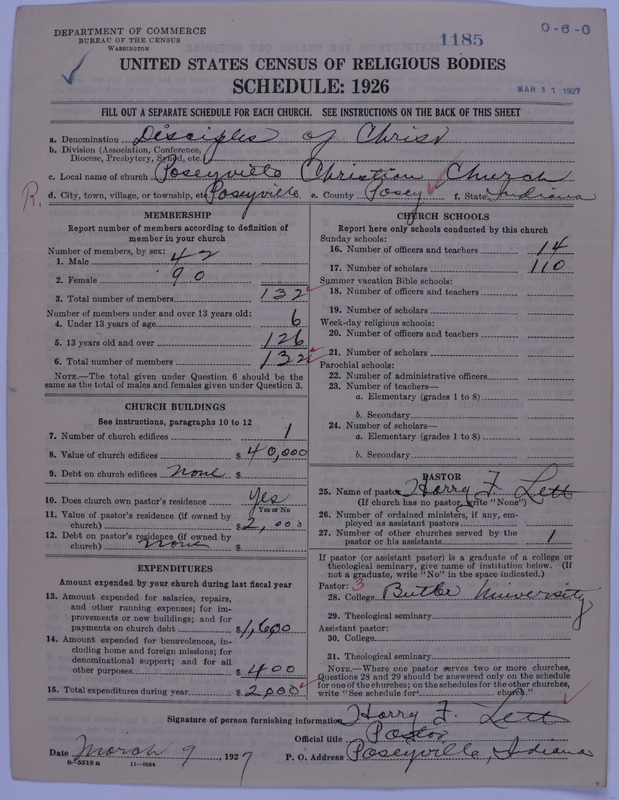 DEPARTMENT OF COMMERCE
BUREAU OF THE CENSUS
WASHINGTON
1185
0-6-0
UNITED STATES CENSUS OF RELIGIOUS BODIES
SCHEDULE: 1926
MAR 11 1927
FILL OUT A SEPARATE SCHEDULE FOR EACH CHURCH. SEE INSTRUCTIONS ON THE BACK OF THIS SHEET
a. Denomination Disciples of Christ
b. Division (Association, Conference,
Diocese, Presbytery, Synod, etc.)
c. Local name of church Poseyville Christian Church
R. d. City, town, village, or township, etc. Poseyville e. County Posey f. State Indiana
MEMBERSHIP
Report number of members according to definition of
member in your church
Number of members, by sex:
1. Male 42
2. Female 90
3. Total number of members 132
Number of members under and over 13 years old:
4. Under 13 years of age 6
5. 13 years old and over 126
6. Total number of members 132
NOTE.—The total given under Question 6 should be the
same as the total of males and females given under Question 3.
CHURCH BUILDINGS
See instructions, paragraphs 10 to 12
7. Number of church edifices 1
8. Value of church edifices $ 40,000
9. Debt on church edifices none $
10. Does church own pastor's residence Yes
Yes or No
11. Value of pastor's residence (if owned by
church) $ 2,000
12. Debt on pastor's residence (if owned by
church) none $
EXPENDITURES
Amount expended by your church during last fiscal year
13. Amount expended for salaries, repairs,
and other running expenses; for im-
provements or new buildings; and for
payments on church debt $ 1,600
14. Amount expended for benevolences, in-
cluding home and foreign missions; for
denominational support; and for all
other purposes $ 400
15. Total expenditures during year $ 2,000
CHURCH SCHOOLS
Report here only schools conducted by this church
Sunday schools:
16. Number of officers and teachers 14
17. Number of scholars 110
Summer vacation Bible schools:
18. Number of officers and teachers
19. Number of scholars
Week-day religious schools:
20. Number of officers and teachers
21. Number of scholars
Parochial schools:
22. Number of administrative officers
23. Number of teachers—
a. Elementary (grades 1 to 8)
b. Secondary
24. Number of scholars—
a. Elementary (grades 1 to 8)
b. Secondary
PASTOR
25. Name of pastor Harry F. Lett
(If church has no pastor, write "None")
26. Number of ordained ministers, if any, em-
ployed as assistant pastors
27. Number of other churches served by the
pastor or his assistants 1
If pastor (or assistant pastor) is a graduate of a college or
theological seminary, give name of institution below. (If
not a graduate, write "No" in the space indicated.)
Pastor: 3
28. College Butler University
29. Theological seminary
Assistant pastor:
30. College
31. Theological seminary
NOTE.—Where one pastor serves two or more churches,
Questions 28 and 29 should be answered only on the schedule
for one of the churches; on the schedules for the other churches,
write "See schedule for church."
Signature of person furnishing information Harry F. Lett
Official title Pastor
Date March 9, 1927 P. O. Address Poseyville, Indiana
8-5518 a 11-9054